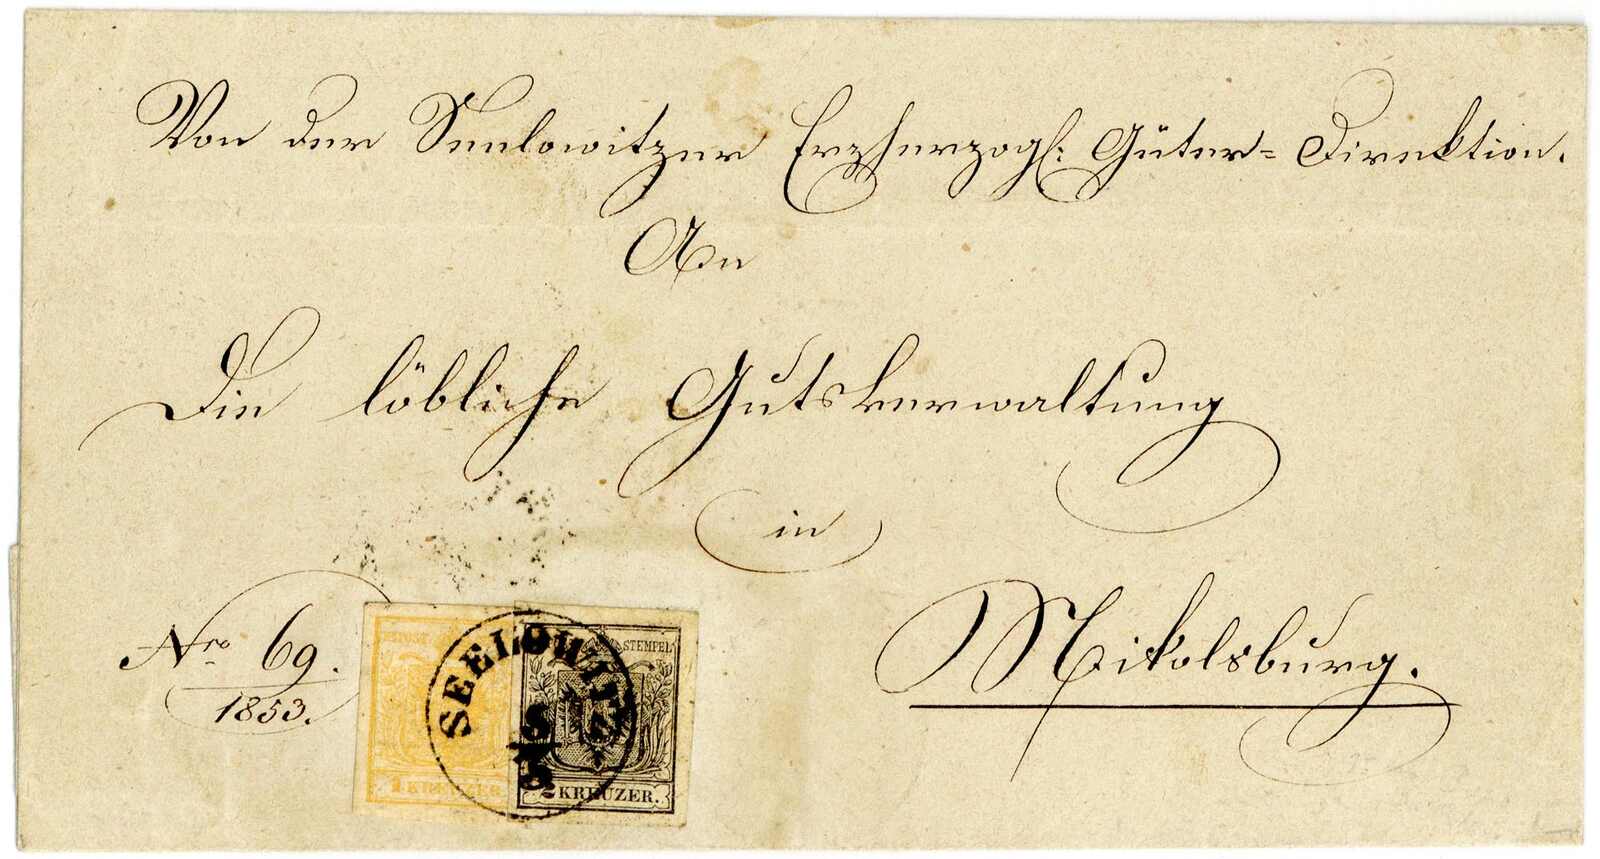 Von der Seelowitzer Erzherzogl: Güter= Direktion.
An
Die löbliche Gutsverwaltung
in
Nikolsburg.
Nro 69.
1853.
SEELOWITZ
8
3
STEMPEL
1 KREUZER.
2 KREUZER.